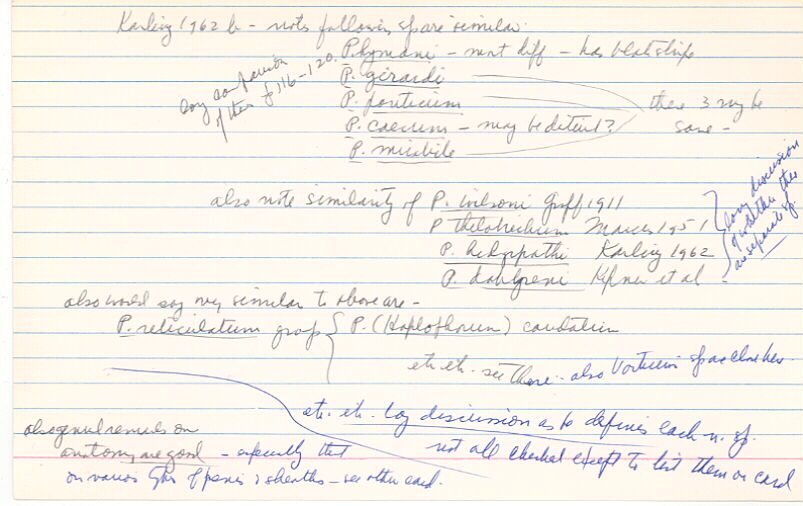 Karling 1962 b - notes following sp are similar.
P. hymani - most diff - has
long comparison of these p 116-120.
P. girardi
P. ponticum
these 3 may be same -
P. caecum - may be distinct?
P. mirabile
also note similarity of P. wilsoni Graff 1911
P Marcus 1951
P. Karling 1962
P. dahlgreni Kepner et al
long discussion of whether these are separate sp.
also would say very similar to above are -
P. reticulatum group { P. (Haplo ) caudatum
etc etc - see there - also sp are close here
etc. etc. Long discussion as he defines each n. sp.
not all checked except to list them on card
also genul remarks on
anatomy are good - especially that
on various types of penis & sheaths - see other card.